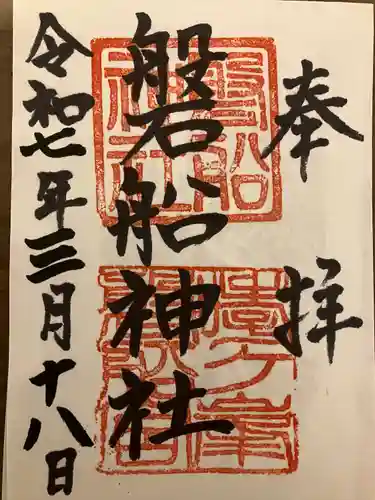 奉拝
磐船神社
磐船神社
令和七年三月十八日